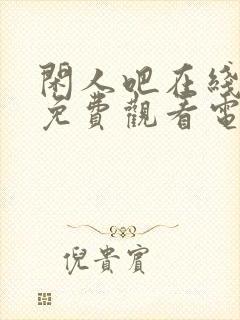 閑人吧在綫
免費觀看電
倪貴賓